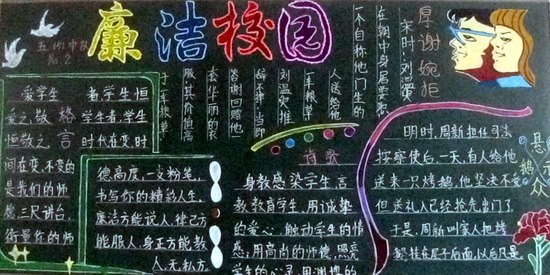 廉洁校园
五(4)中队
No.2
爱学生 者学生恒
爱之,敬 格 学生者,学生
恒敬之。 言 时代在变,时
间在变,不变的
是我们的师
德,三尺讲台,
衡量你的师
德高度,一支粉笔,
书写你的精彩人生。
廉洁方能说人,律己方
能服人,身正方能教
人,无私方
厚谢婉拒
宋时,刘温叟
在朝中身居要职
一个自称他门生的
人送给他
一车粮草
刘温叟推
辞不掉,当即
答谢回赠他
套华丽的衣
服,其价值高
于车粮草
诗歌
身教感染学生,言
教教育学生,用诚挚
的爱心,触动学生的情
感;用高尚的师德,照亮
学生的心灵,用渊博的
悬鹅示众
明时,周新担任司法
按察使后,一天,有人给他
送来一只烤鹅,他坚决不受
但送礼人已经抢先出门了
于是,周新叫家人把烤
鹅挂在屋子后面,以后凡是